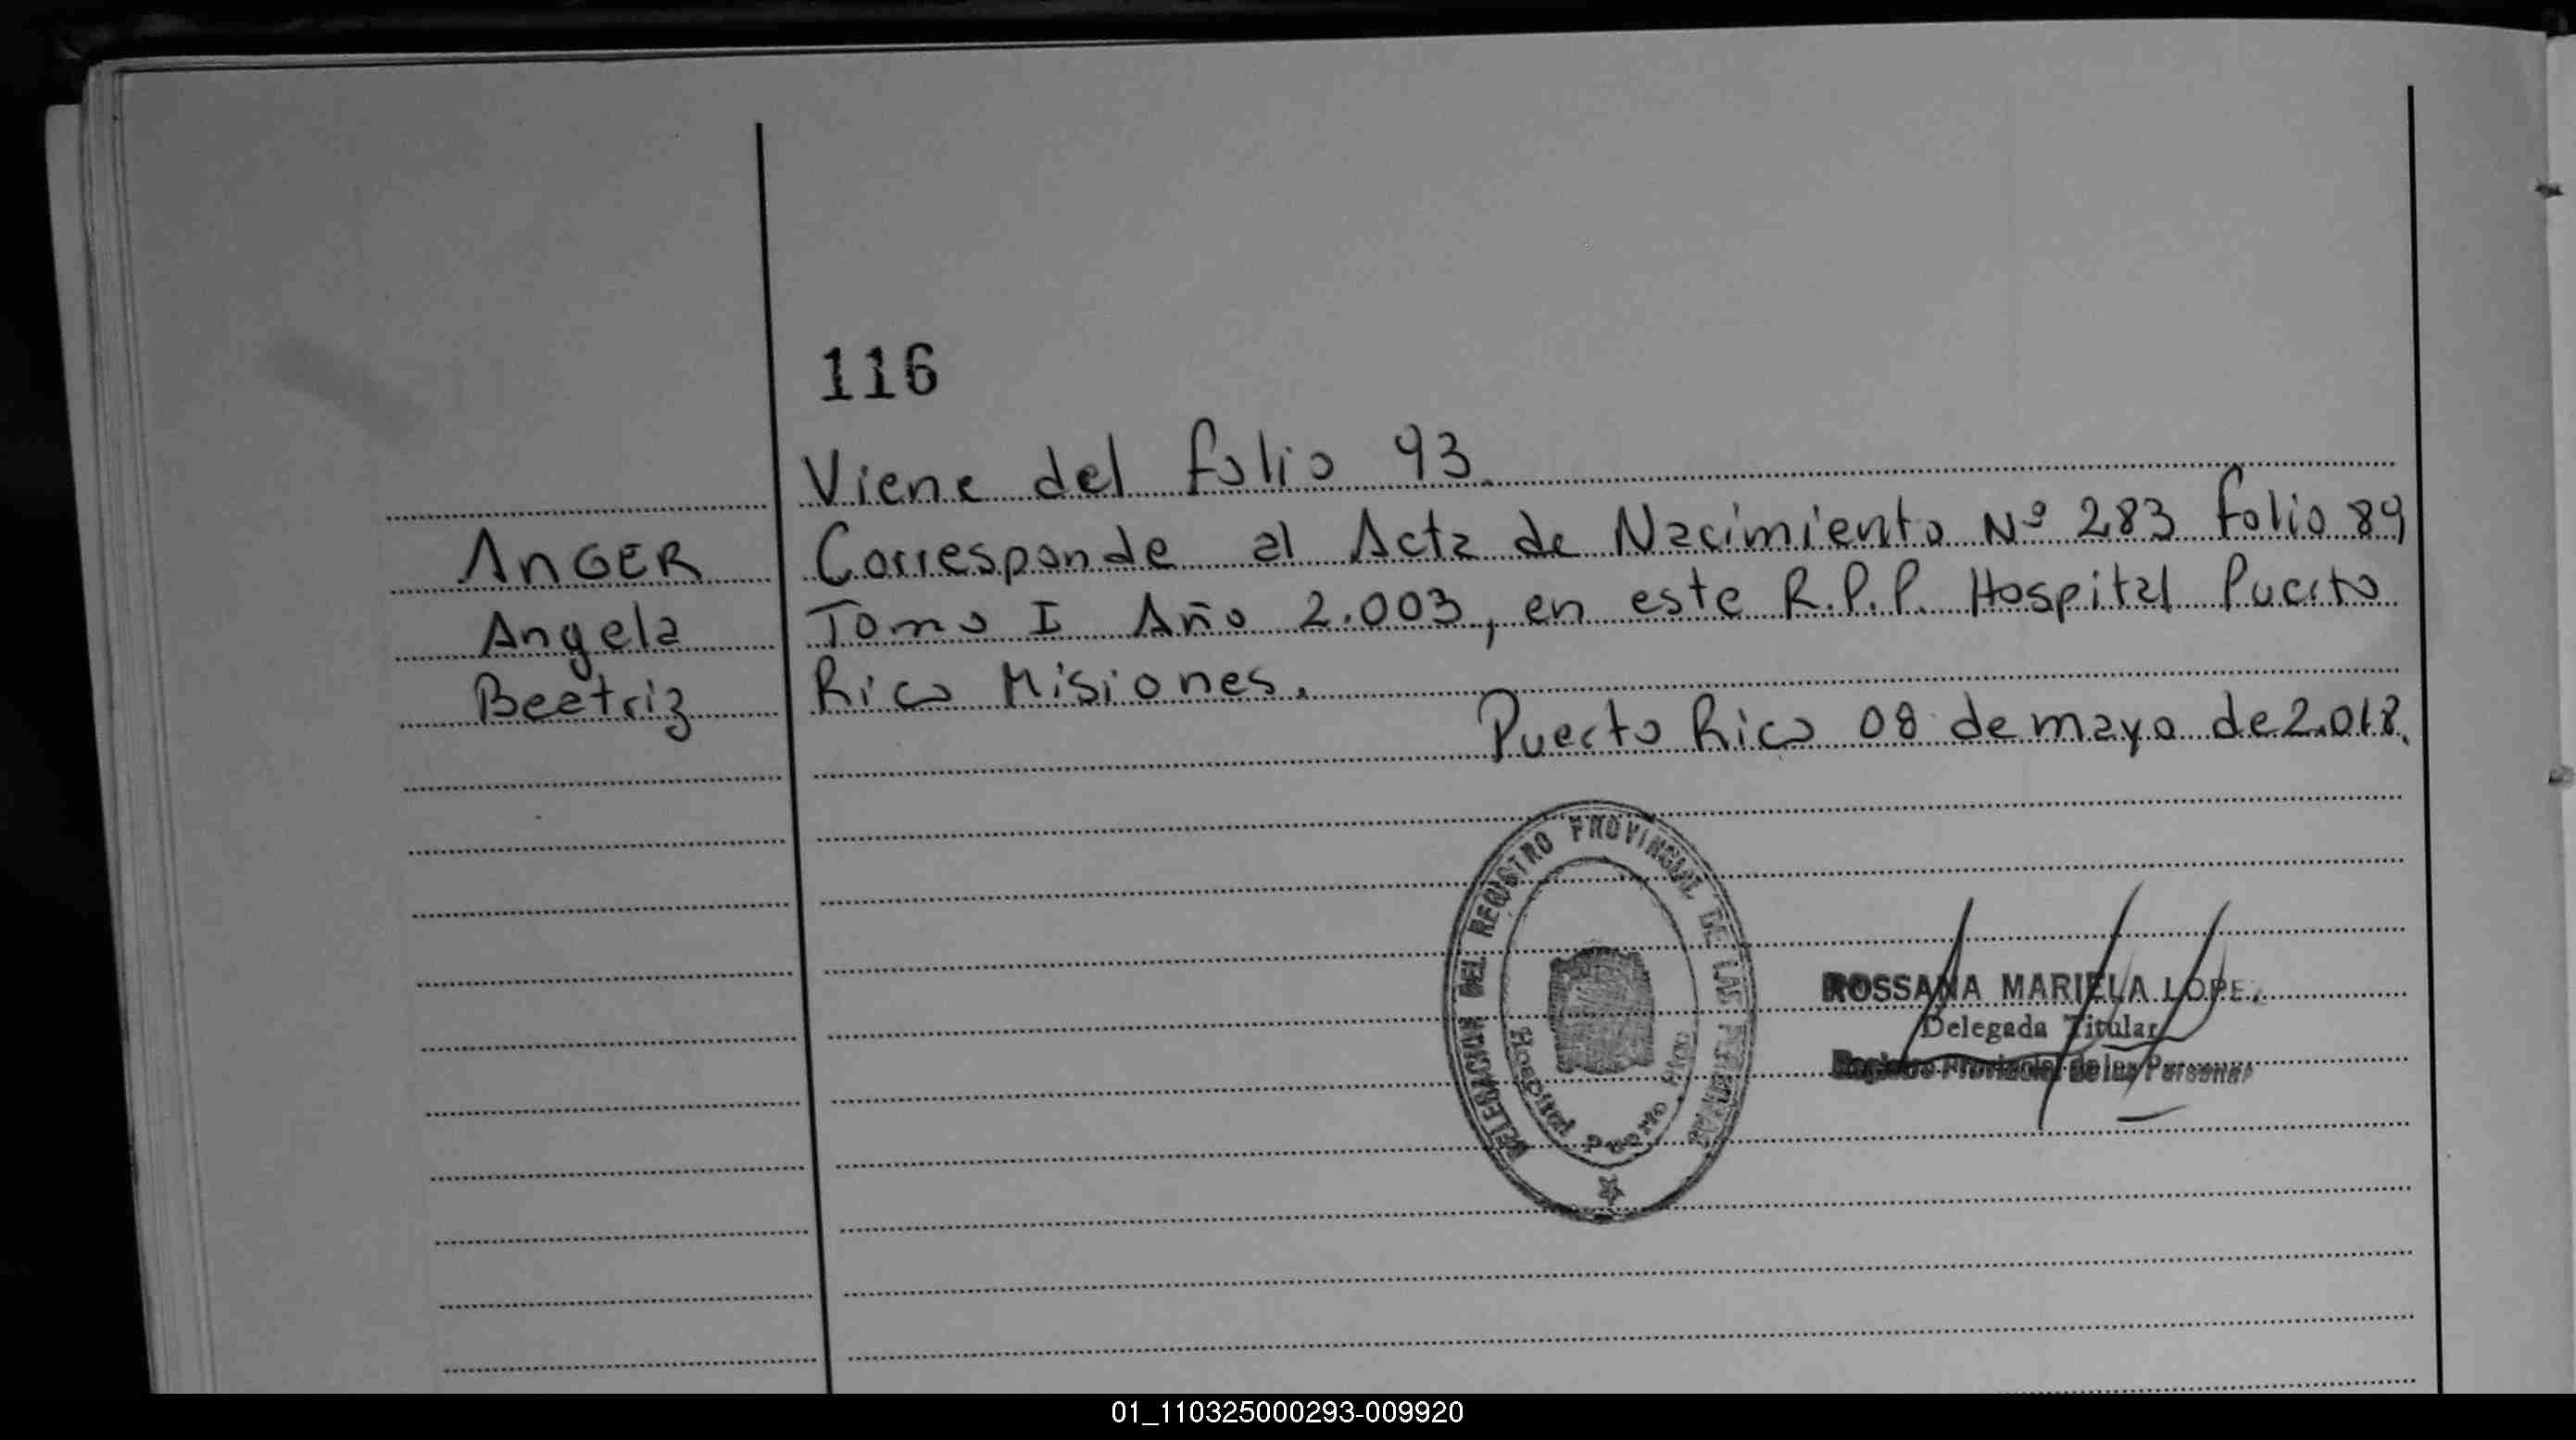 116
Viene del folio 93.
ANGER Corresponde al Acta de Nacimiento Nº 283 folio 89
Angela Tomo I Año 2.003, en este R.P.P. Hospital Puerto
Beatriz Rico Misiones.
Puerto Rico 08 de mayo de 2.018.
DELEGACION DEL REGISTRO PROVINCIAL DE LAS PERSONAS
Hospital Puerto Rico
ROSSANA MARIELA LOPEZ
Delegada Titular
Registro Provincial de las Personas
01_110325000293-009920